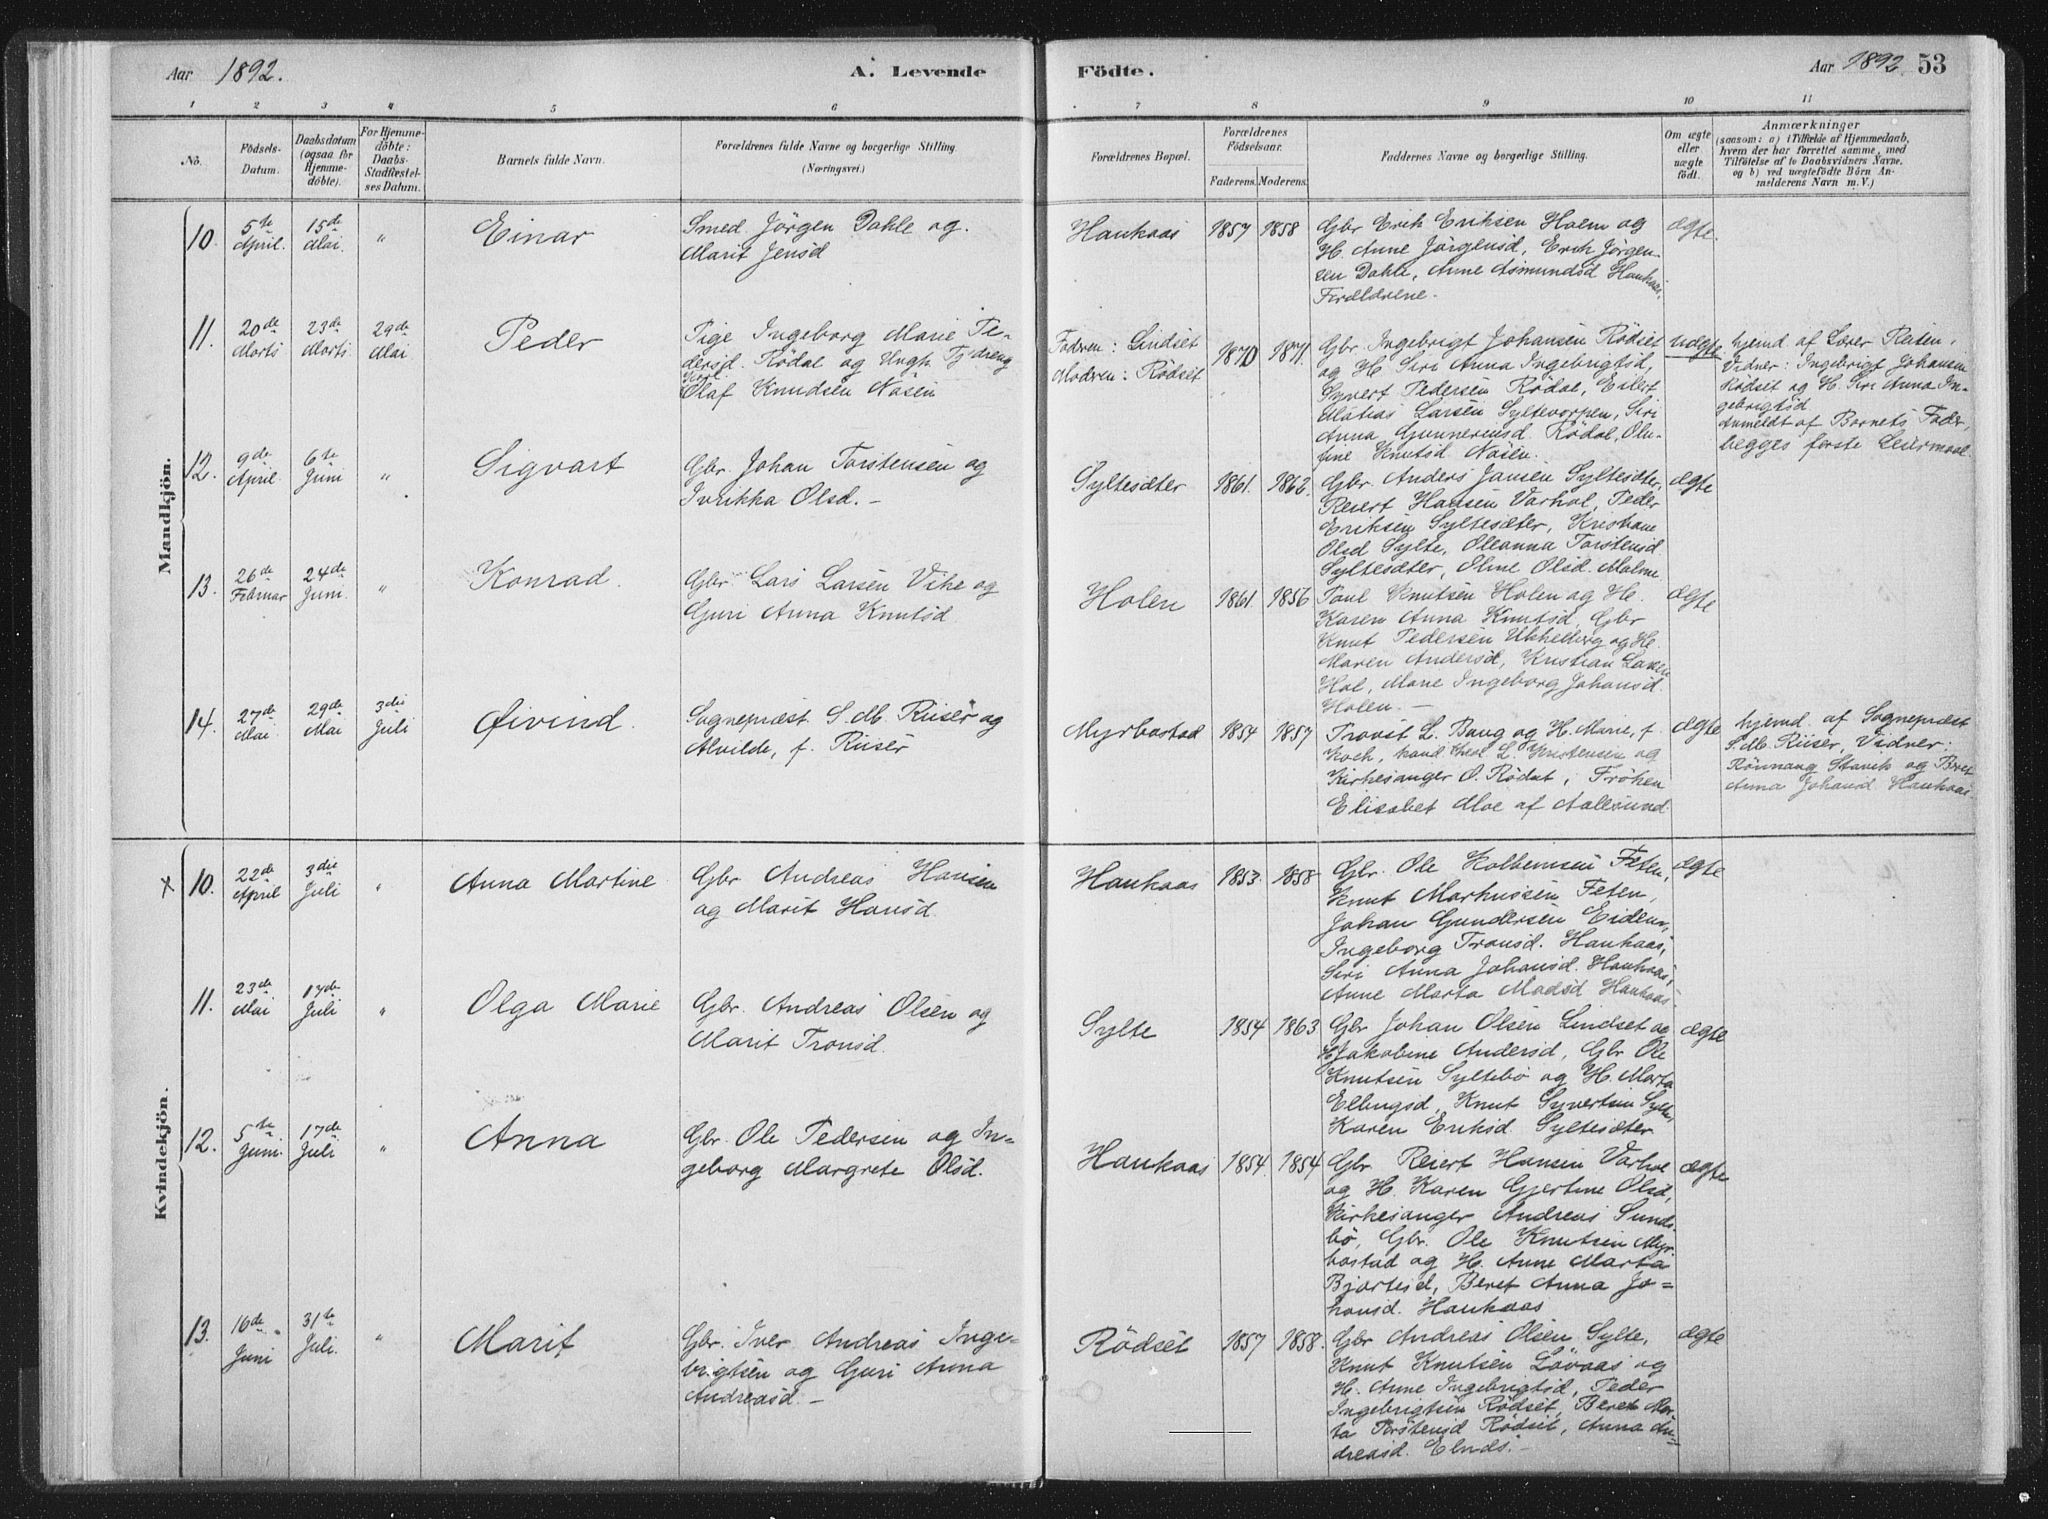 Aar 1892.
A. Levende Födte.
Aar 1892. 53
1 2 3 4 5 6 7 8 9 10 11
No.
Födsels-
Datum.
Daabsdatum
(ogsaa for
Hjemme-
döbte).
For Hjemme-
döbte:
Daabs-
Stadfæstel-
ses Datum.
Barnets fulde Navn.
Forældrenes fulde Navne og borgerlige Stilling.
(Næringsvei.)
Forældrenes Bopæl.
Forældrenes
Födselsaar.
Faderens. Moderens.
Faddernes Navne og borgerlige Stilling.
Om ægte
eller
uægte
födt.
Anmærkninger
(saasom: a) i Tilfælde af Hjemmedaab,
hvem der har forrettet samme, med
Tilföielse af to Daabsvidners Navne,
og b) ved uægtefödte Börn An-
melderens Navn m. V.)
Mandkjön.
10.
5te
April.
15de
Mai.
"
Einar
Smed. Jörgen Dahle og
Marit Jensd
Haukaas
1857 1858
Gbr Erik Eriksen Holm og
H. Anne Jörgensd, Erik Jörgen-
sen Dahle, Anne Asmundsd Haukaas,
Forældrene.
ægte.
11.
20de
Marts
23de
Marts
29de
Mai
Peder
Pige Ingeborg Marie Pe-
dersd. Rödal og Ungk. Tjdreng
Karl
Olaf Knudsen Näsen
Fadren: Lindset
Modren: Rödset
1870 1871.
Gbr. Ingebrigt Johansen Rödset
og H Siri Anna Ingebrigtsd,
Syvert Pedersen Rödal, Eilert
Matias Larsen Syltevorpen, Siri
Anna Gunneriusd. Rödal, Olu-
fine Knutsd Näsen.
uægte
hjemd. af Lærer Reiten,
Vidner: Ingebrigt Johansen
Rödset og H. Siri Anna In-
gebrigtsd
Anmeldt af Barnets Fader,
begges förste Leiermaal.
12.
9de
April.
6te
Juni
"
Sigvart
Gbr. Johan Torstensen og
Ivrikka Olsd. -
Syltesæter
1861. 1862.
Gbr. Anders Jansen Syltesæter,
Reiert Hansen Varhol, Peder
Eriksen Syltesæter, Kristiane
Olsd Sylte, Oleanna Torstensd
Syltesæter, Oline Olsd. Malme
ægte
13.
26de
Februar
24de
Juni.
"
Konrad.
Gbr Lars Larsen Vike og
Guri Anna Knutsd.
Holen
1861. 1856
Paul Knutsen Holen og H.
Karen Anna Knutsd, Gbr
Knut Pedersen Ukkelberg og H.
Maren Andersd, Kristian Larsen
Hol, Marie Ingeborg Johansd.
Holen. -
ægte
14.
27de
Mai
29de
Mai
3die
Juli
Øivind.
Sognepræst S. M. Riisēr og
Alvilde, f. Riisēr
Myrbostad
1854 1857
Provst L. Bang og H. Marie, f.
Koch, kand theol L. Kristensen og
Kirkesanger O. Rödset, Fröken
Elisabet Moe af Aalesund.
ægte
hjemd. af Sognepræst
S. M. Riiser, Vidner:
Rönnaug Stavik og Beret
Anna Johansd. Haukaas.
Kvindekjön.
x 10.
22de
April
3die
Juli
"
Anna Martine
Gbr Andreas Hansen
og Marit Hansd.
Haukaas
1853. 1858.
Gbr. Ole Kolbensen Feten,
Knut Markussen Feten,
Johan Gundersen Eiden,
Ingeborg Tronsd. Haukaas,
Siri Anna Johansd. Haukaas,
Anne Marta Madsd Haukaas
ægte
11.
23de
Mai
17de
Juli
"
Olga Marie
Gbr. Andreas Olsen og
Marit Tronsd.
Sylte
1854 1863
Gbr Johan Olsen Lindset og
H. Jakobine Andersd, Gbr Ole
Knutsen Syltebö og H. Marta
Ellingsd, Knut Syvertsen Sylte,
Karen Eriksd Syltesæter
ægte
12.
5te
Juni.
17de
Juli
"
Anna
Gbr. Ole Pedersen og In-
geborg Margrete Olsd.
Haukaas
1854. 1854
Gbr. Reiert Hansen Varhol
og H. Karen Gjertine Olsd,
Kirkesanger Andreas Sunds-
bö, Gbr. Ole Knutsen Myr-
bostad og H. Anne Marta
Bjartesd, Beret Anna Jo-
hansd. Haukaas
ægte
13.
16de
Juni
31te
Juli.
"
Marit
Gbr. Iver Andreas Inge-
brigtsen og Guri Anna
Andreasd. -
Rödset
1857 1858.
Gbr Andreas Olsen Sylte,
Knut Knutsen Lövaas og
H. Anne Ingebrigtsd, Peder
Ingebrigtsen Rödset, Beret Mar-
ta Torstensd Rödset, Anna An-
dreasd. Elnes. -
ægte